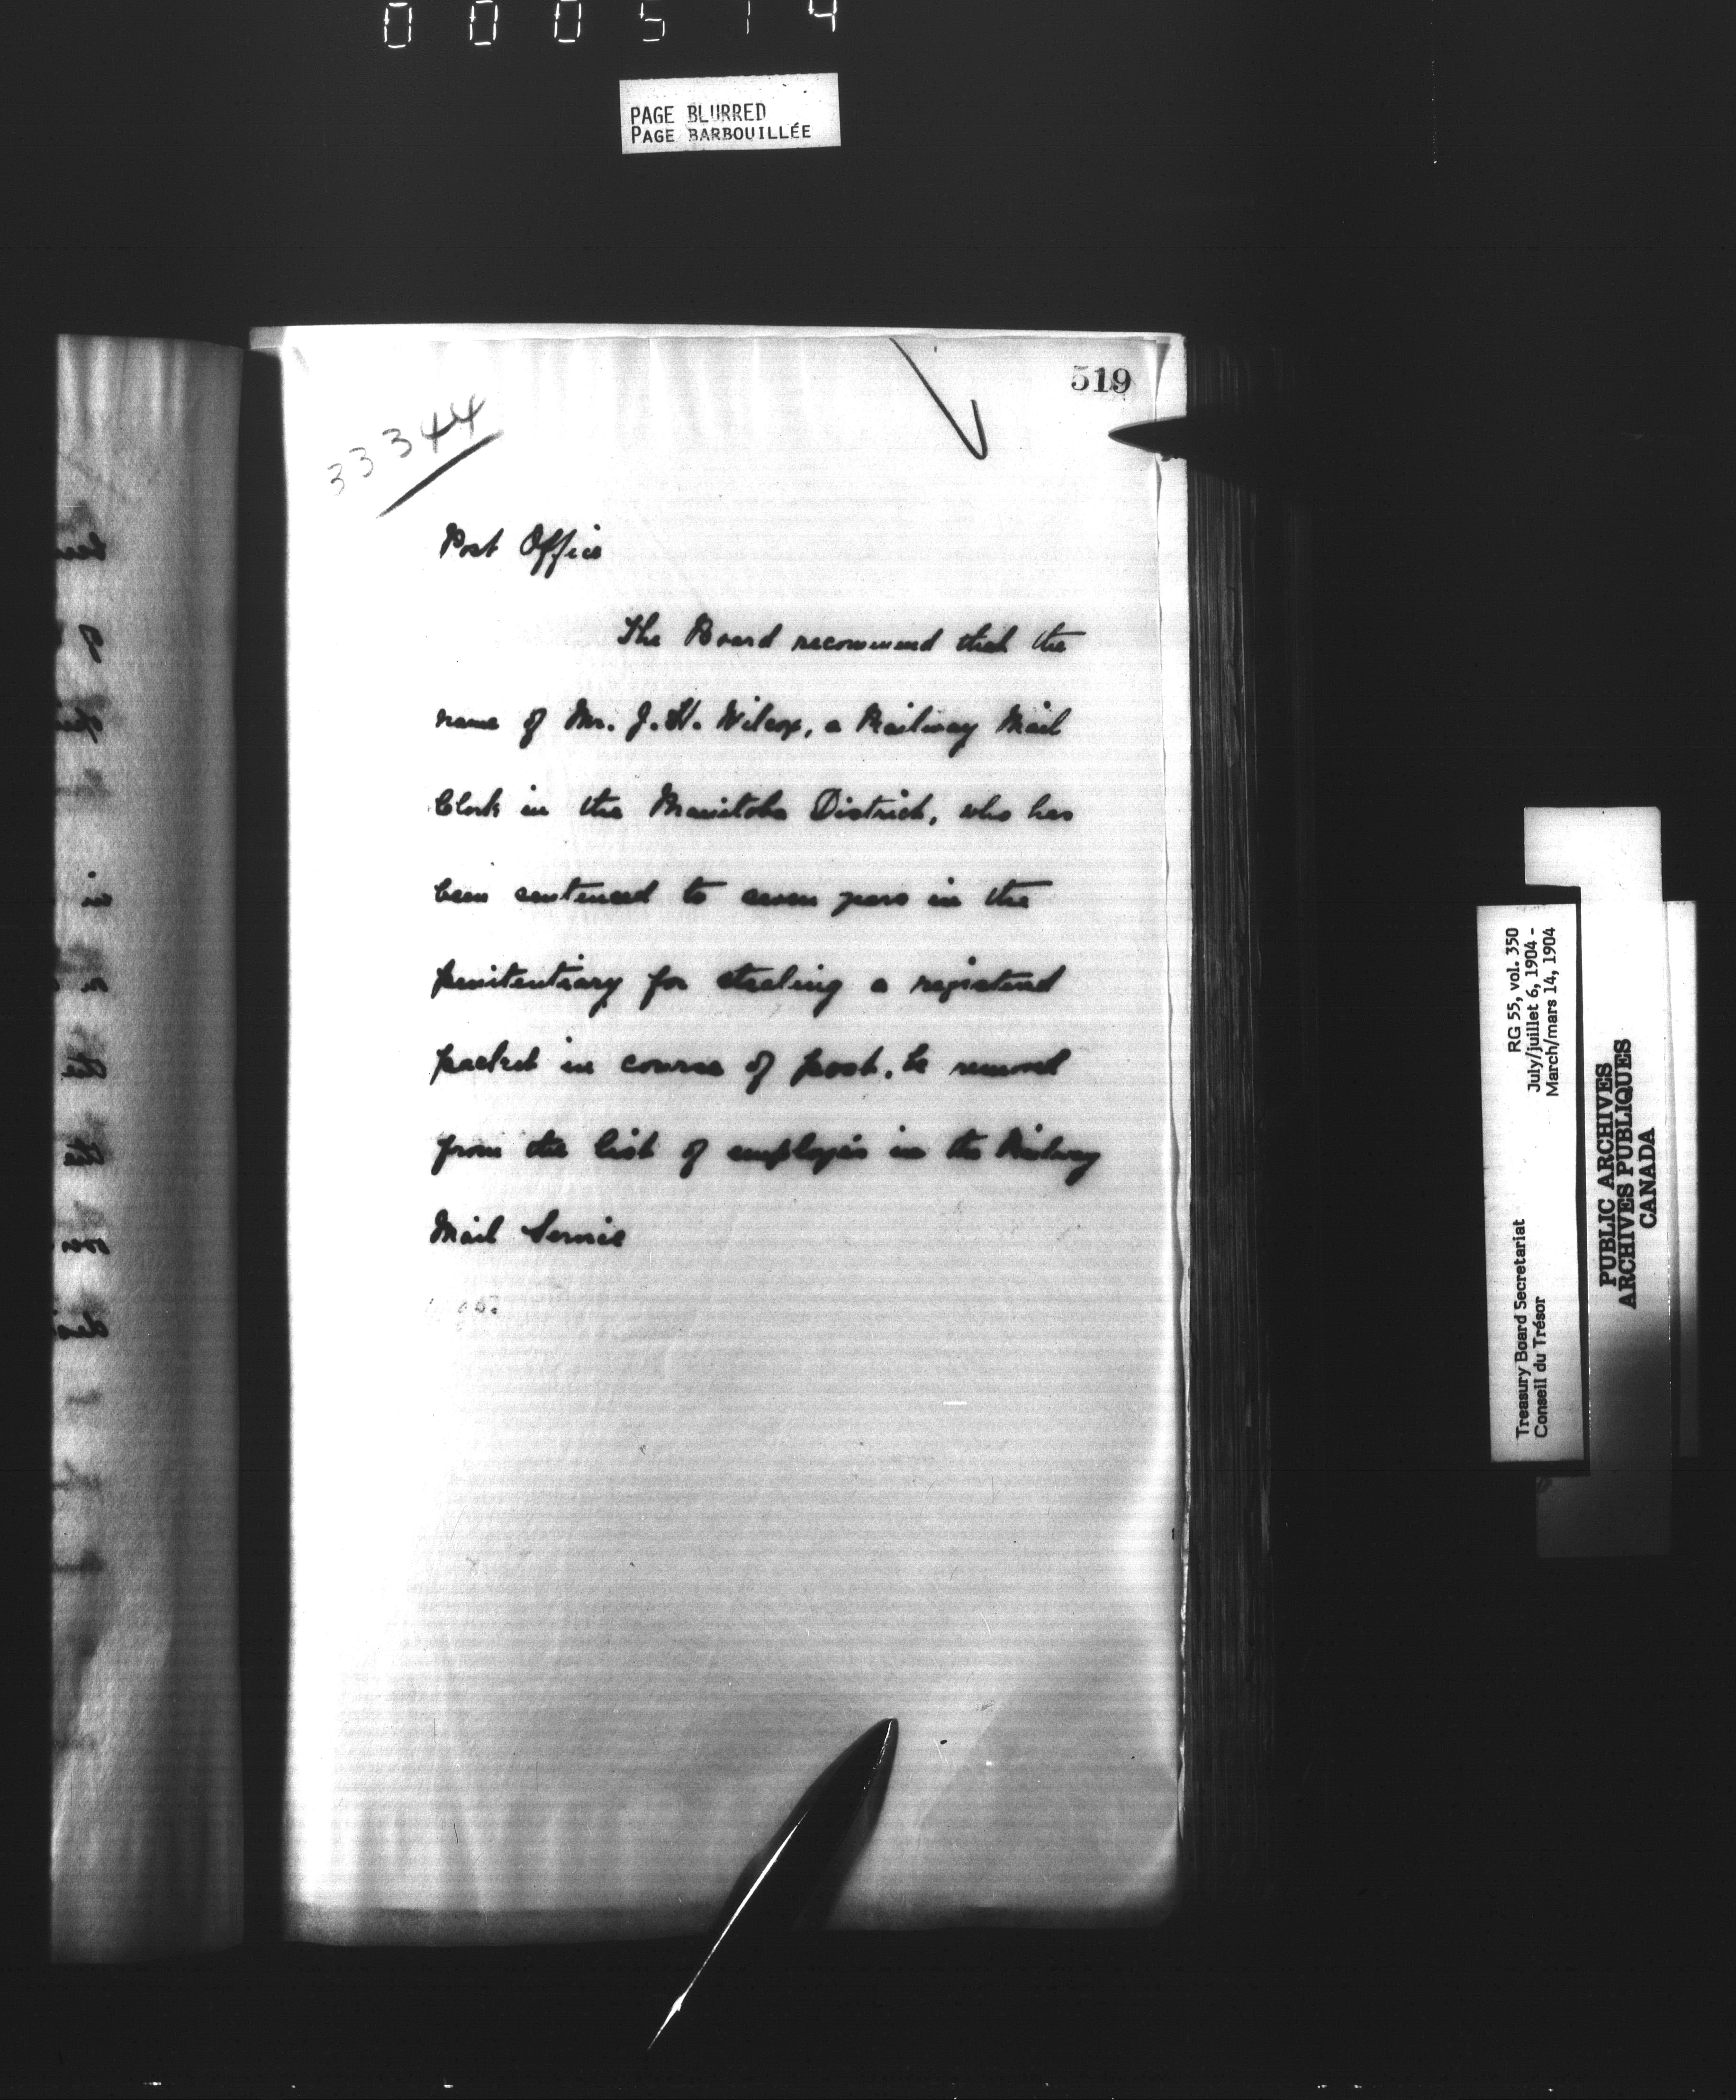 000514
PAGE BLURRED
PAGE BARBOUILLÉE
519
33344
Post Office
The Board recommend that the
name of Mr. J. H. Wilcox, a Railway Mail
Clerk in the Manitoba District, who has
been sentenced to seven years in the
penitentiary for stealing a registered
packet in course of post, be removed
from the list of employés in the Railway
Mail Service
RG 55, vol. 350
July/juillet 6, 1904 -
March/mars 14, 1904
Treasury Board Secretariat
Conseil du Trésor
PUBLIC ARCHIVES
ARCHIVES PUBLIQUES
CANADA